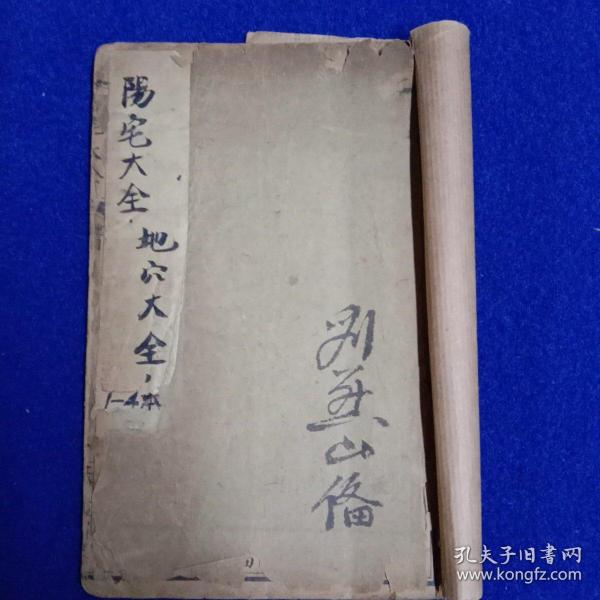 陽宅大全，
地穴大全，
1-4本
山俻
孔夫子旧书网
www.kongfz.com